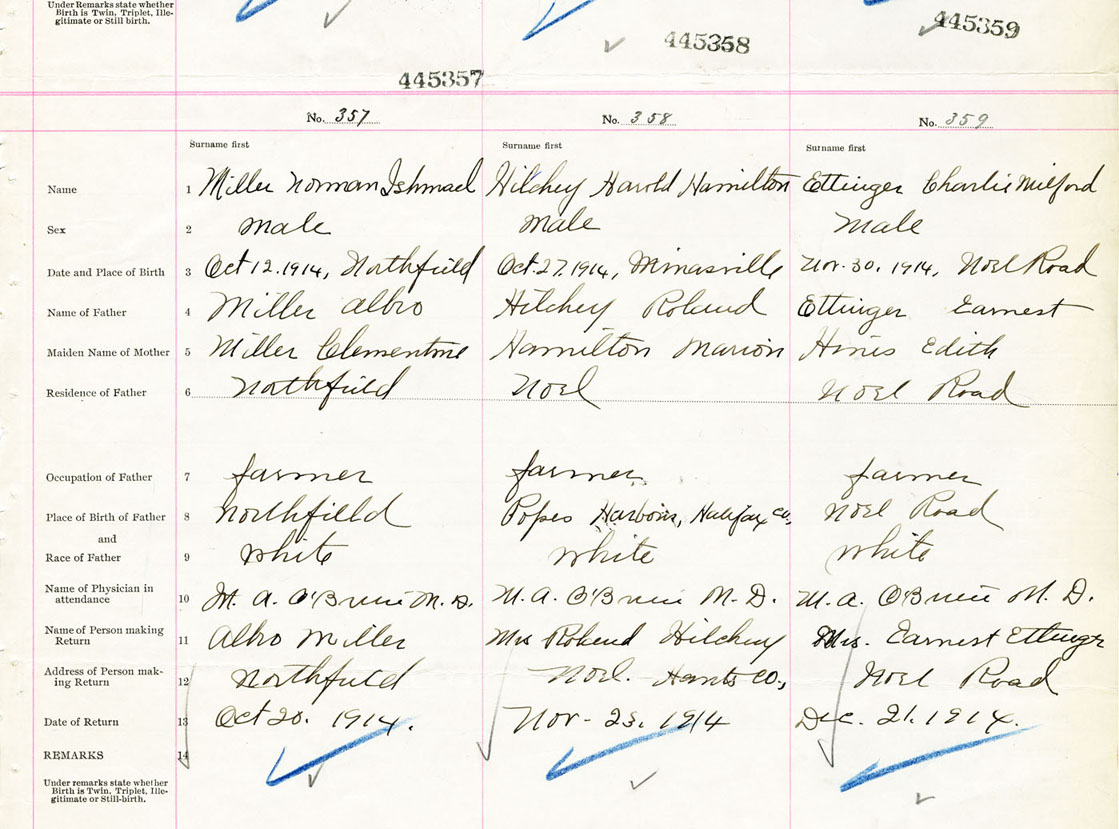 Under Remarks state whether
Birth is Twin, Triplet, Ille-
gitimate or Still birth.
445357
445358
445359
No. 357
No. 358
No. 359
Surname first
Surname first
Surname first
Name 1 Miller Norman Ishmael Hilchey Harold Hamilton Ettinger Charlie Milford
Sex 2 Male Male Male
Date and Place of Birth 3 Oct 12. 1914, Northfield Oct. 27. 1914, Minasville Nov. 30. 1914, Noel Road
Name of Father 4 Miller Albro Hilchey Roland Ettinger Earnest
Maiden Name of Mother 5 Miller Clementine Hamilton Marion Hines Edith
Residence of Father 6 Northfield Noel Noel Road
Occupation of Father 7 farmer farmer farmer
Place of Birth of Father 8 Northfield Popes Harbour, Halifax Co, Noel Road
and
Race of Father 9 White White White
Name of Physician in
attendance 10 M. A. O'Brien M. D. M. A. O'Brien M. D. M. A. O'Brien M. D.
Name of Person making
Return 11 Albro Miller Mrs Roland Hilchey Mrs. Earnest Ettinger
Address of Person mak-
ing Return 12 Northfield Noel. Hants Co., Noel Road
Date of Return 13 Oct 20. 1914. Nov - 23. 1914 Dec. 21. 1914.
REMARKS 14
Under remarks state whether
Birth is Twin, Triplet, Ille-
gitimate or Still-birth.